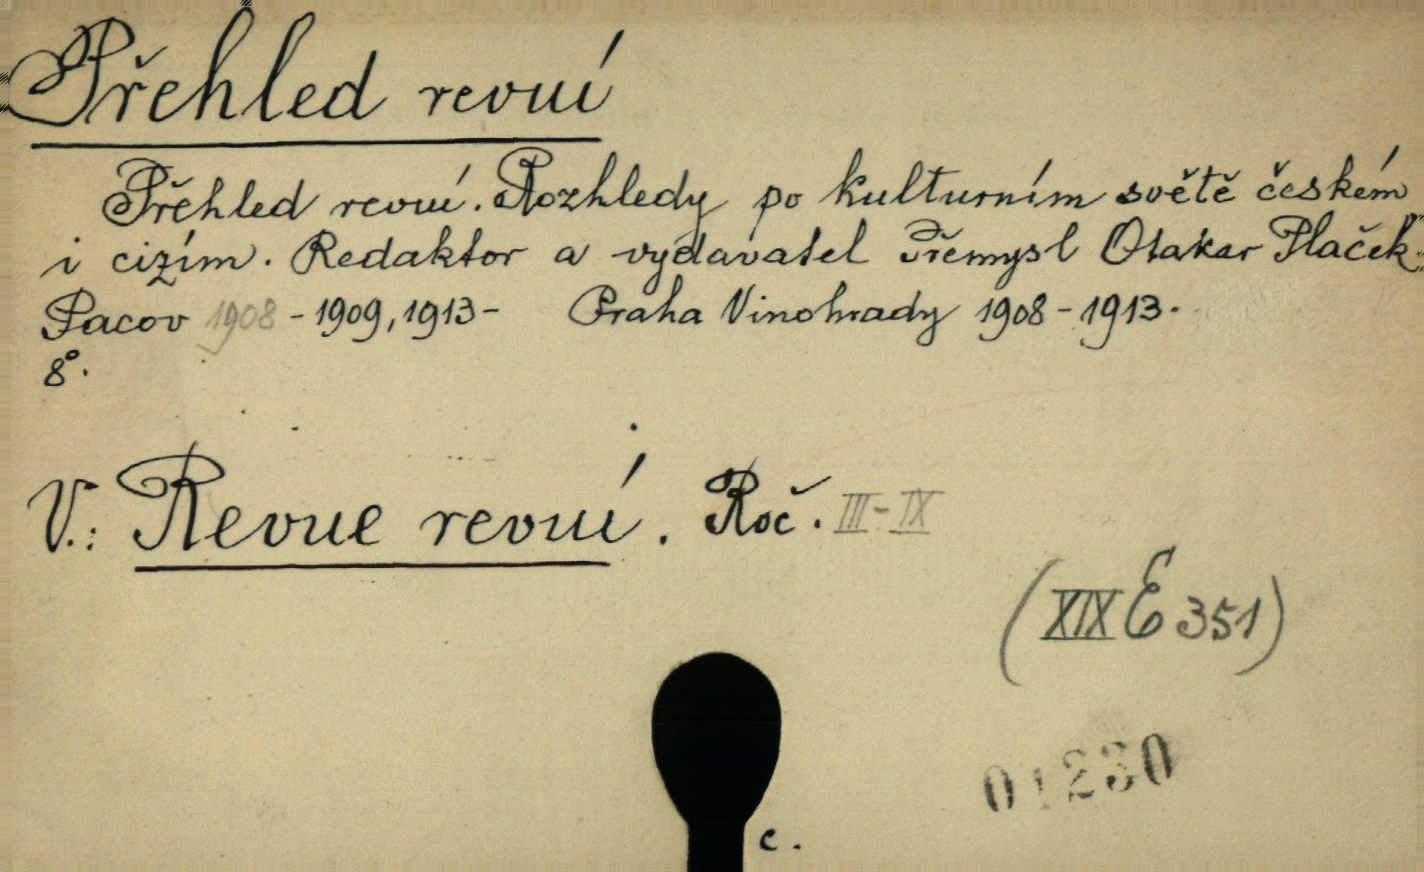 Přehled revuí
Přehled revuí. Rozhledy po kulturním světě českém
i cizím. Redaktor a vydavatel Přemysl Otakar Plaček.
Pacov 1908 - 1909, 1913 - Praha Vinohrady 1908 - 1913.
8°.
V.: Revue revuí. Roč. III - IX
(XIX E 351)
01230
c.